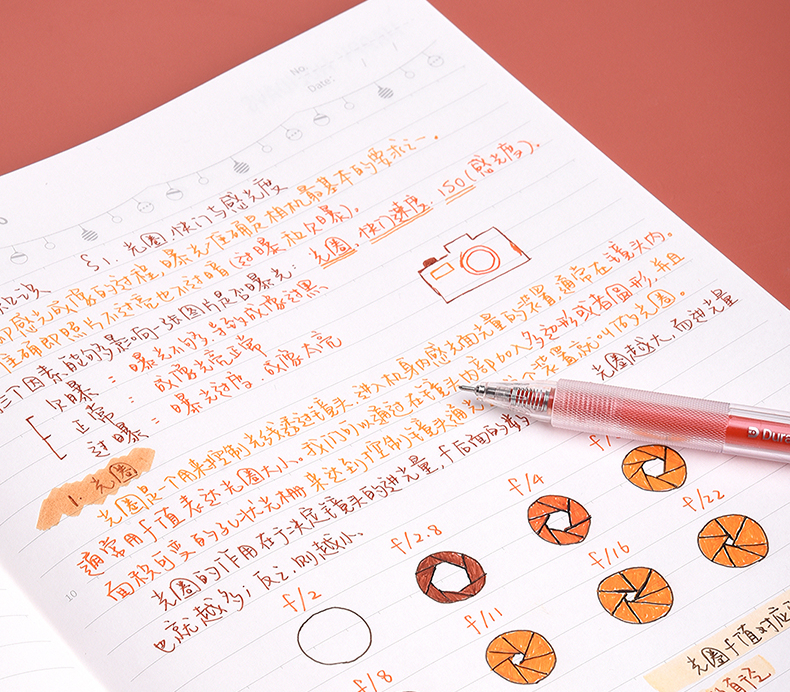 No.
Date:
§1. 光圈、快门与感光度
即感光成像的过程,曝光准确是相机最基本的要求之一。
准确即照片不过亮也不过暗(过曝和欠曝)。
三个因素能够影响一张图片是否曝光: 光圈、快门速度、ISO(感光度)。
欠曝 : 曝光不够,导致成像过黑
正常 : 成像光亮正常
过曝 : 曝光过度,成像太亮
1. 光圈
光圈是一个用来控制光线透过镜头,进入机身内感光面光量的装置,通常在镜头内。
通常用f值表达光圈大小。我们可以通过在镜头内部加入多边形或者圆形,并且
面积可变的孔状光栅来达到控制镜头通光 装置就叫的光圈。
光圈的作用在于决定镜头的进光量,f后面的 光圈越大,而进光量
也就越多;反之,则越小。
f/2
f/2.8
f/4
f/
f/8
f/11
f/16
f/22
光圈f值对应
直径
10
Dura